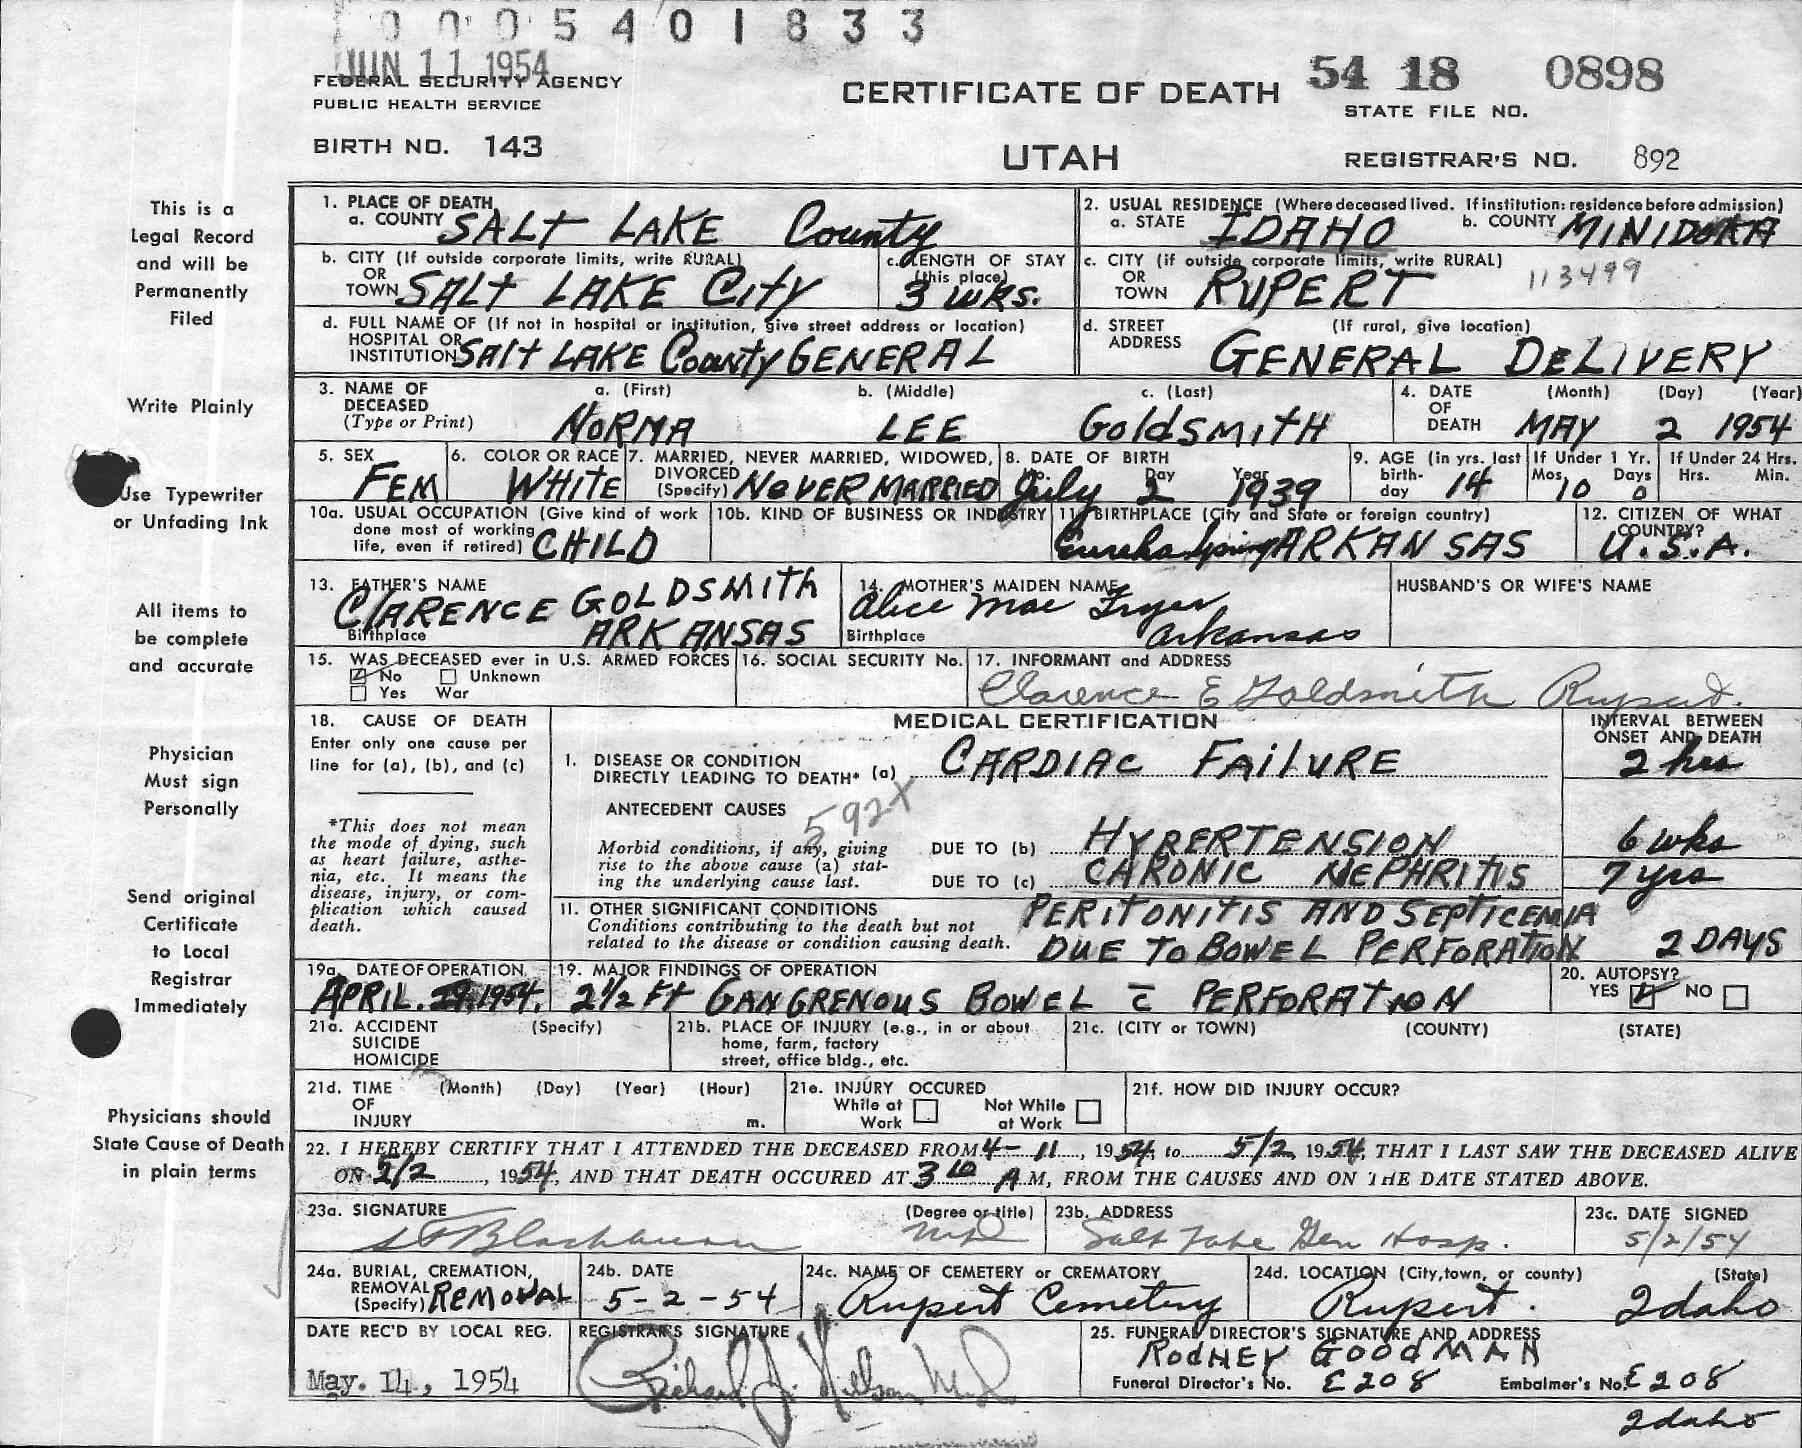 0005401833
JUN 11 1954
FEDERAL SECURITY AGENCY
PUBLIC HEALTH SERVICE
BIRTH NO. 143
CERTIFICATE OF DEATH
UTAH
54 18 0898
STATE FILE NO.
REGISTRAR'S NO. 892
This is a
Legal Record
and will be
Permanently
Filed
Write Plainly
Use Typewriter
or Unfading Ink
All items to
be complete
and accurate
Physician
Must sign
Personally
Send original
Certificate
to Local
Registrar
Immediately
Physicians should
State Cause of Death
in plain terms
1. PLACE OF DEATH
a. COUNTY SALT LAKE County
2. USUAL RESIDENCE (Where deceased lived. If institution: residence before admission)
a. STATE IDAHO b. COUNTY MINIDOKA
b. CITY (If outside corporate limits, write RURAL)
OR
TOWN SALT LAKE CITY
c. LENGTH OF STAY
(this place)
3 WKS.
c. CITY (if outside corporate limits, write RURAL)
OR
TOWN RUPERT
113499
d. FULL NAME OF (If not in hospital or institution, give street address or location)
HOSPITAL OR
INSTITUTION SALT LAKE County GENERAL
d. STREET (If rural, give location)
ADDRESS GENERAL DELIVERY
3. NAME OF DECEASED (Type or Print)
a. (First) b. (Middle) c. (Last)
NORMA LEE GoldSMITH
4. DATE OF DEATH (Month) (Day) (Year)
MAY 2 1954
5. SEX
FEM
6. COLOR OR RACE
WHITE
7. MARRIED, NEVER MARRIED, WIDOWED,
DIVORCED
(Specify) NEVER MARRIED
8. DATE OF BIRTH
Mo. Day Year
July 2 1939
9. AGE (in yrs. last
birth-
day 14
If Under 1 Yr.
Mos. Days
10 0
If Under 24 Hrs.
Hrs. Min.
10a. USUAL OCCUPATION (Give kind of work
done most of working
life, even if retired) CHILD
10b. KIND OF BUSINESS OR INDUSTRY
11. BIRTHPLACE (City and State or foreign country)
Eureka Springs ARKANSAS
12. CITIZEN OF WHAT
COUNTRY?
U.S.A.
13. FATHER'S NAME
CLARENCE GOLDSMITH
Birthplace ARKANSAS
14. MOTHER'S MAIDEN NAME
Alice Mae Fryer
Birthplace Arkansas
HUSBAND'S OR WIFE'S NAME
15. WAS DECEASED ever in U.S. ARMED FORCES
No Unknown
Yes War
16. SOCIAL SECURITY No.
17. INFORMANT and ADDRESS
Clarence E Goldsmith Rupert.
18. CAUSE OF DEATH
Enter only one cause per
line for (a), (b), and (c)
*This does not mean
the mode of dying, such
as heart failure, asthe-
nia, etc. It means the
disease, injury, or com-
plication which caused
death.
MEDICAL CERTIFICATION
INTERVAL BETWEEN
ONSET AND DEATH
1. DISEASE OR CONDITION
DIRECTLY LEADING TO DEATH* (a) CARDIAC FAILURE 2 hrs
ANTECEDENT CAUSES
592X
Morbid conditions, if any, giving
rise to the above cause (a) stat-
ing the underlying cause last.
DUE TO (b) HYPERTENSION 6 wks
DUE TO (c) CHRONIC NEPHRITIS 7 yrs
11. OTHER SIGNIFICANT CONDITIONS
Conditions contributing to the death but not
related to the disease or condition causing death.
PERITONITIS AND SEPTICEMIA
DUE TO BOWEL PERFORATION 2 DAYS
19a. DATE OF OPERATION
APRIL. 29, 1954.
19. MAJOR FINDINGS OF OPERATION
2 1/2 FT GANGRENOUS BOWEL c̄ PERFORATION
20. AUTOPSY?
YES NO
21a. ACCIDENT (Specify)
SUICIDE
HOMICIDE
21b. PLACE OF INJURY (e.g., in or about
home, farm, factory
street, office bldg., etc.
21c. (CITY or TOWN) (COUNTY) (STATE)
21d. TIME (Month) (Day) (Year) (Hour)
OF
INJURY m.
21e. INJURY OCCURED
While at Work
Not While at Work
21f. HOW DID INJURY OCCUR?
22. I HEREBY CERTIFY THAT I ATTENDED THE DECEASED FROM 4-11, 1954, to 5/2 1954, THAT I LAST SAW THE DECEASED ALIVE
ON 5/2, 1954, AND THAT DEATH OCCURED AT 3 10 A M, FROM THE CAUSES AND ON THE DATE STATED ABOVE.
23a. SIGNATURE (Degree or title)
Blackburn MD
23b. ADDRESS
Salt Lake Gen Hosp.
23c. DATE SIGNED
5/2/54
24a. BURIAL, CREMATION,
REMOVAL
(Specify) REMOVAL
24b. DATE
5-2-54
24c. NAME OF CEMETERY or CREMATORY
Rupert Cemetery
24d. LOCATION (City, town, or county) (State)
Rupert. Idaho
DATE REC'D BY LOCAL REG.
May. 14, 1954
REGISTRAR'S SIGNATURE
Richard J.
25. FUNERAL DIRECTOR'S SIGNATURE AND ADDRESS
RODNEY GOODMAN
Funeral Director's No. E208 Embalmer's No. E208
Idaho